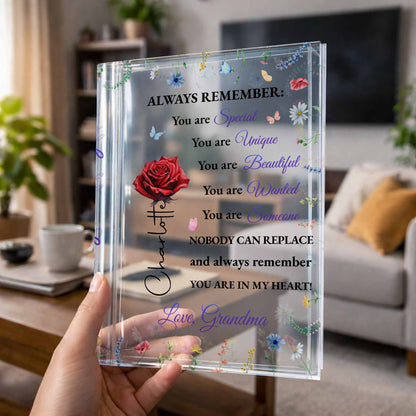 ALWAYS REMEMBER:
You are Special
You are Unique
You are Beautiful
You are Wanted
You are Someone
NOBODY CAN REPLACE
and always remember
YOU ARE IN MY HEART!
Love, Grandma
Charlotte